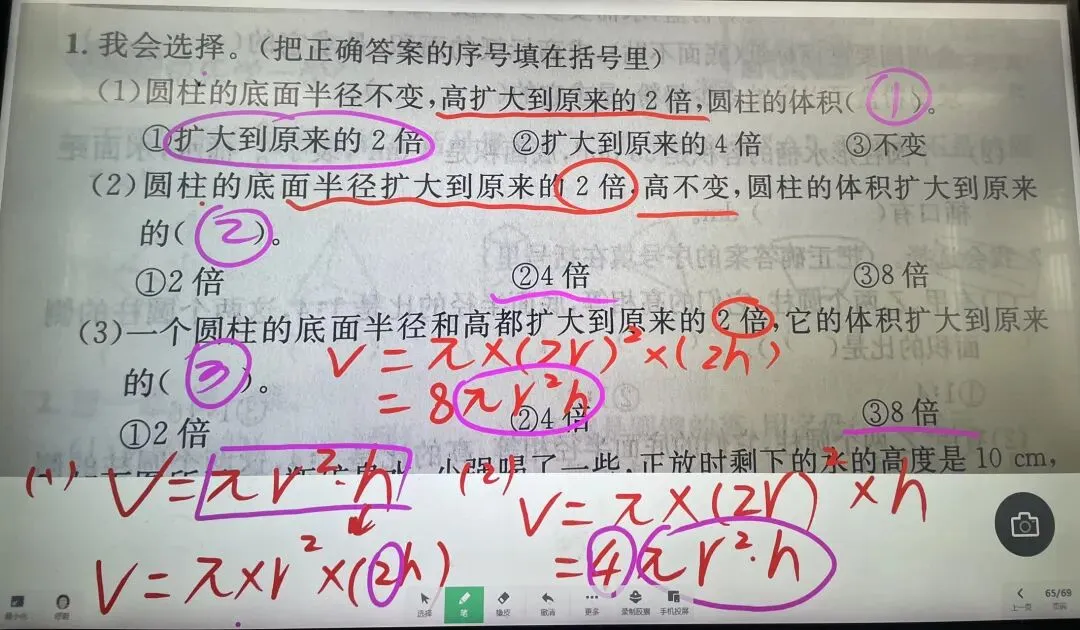 1. 我会选择。(把正确答案的序号填在括号里)
(1)圆柱的底面半径不变,高扩大到原来的2倍,圆柱的体积( ① )。
①扩大到原来的2倍 ②扩大到原来的4倍 ③不变
(2)圆柱的底面半径扩大到原来的2倍,高不变,圆柱的体积扩大到原来
的( ② )。
①2倍 ②4倍 ③8倍
(3)一个圆柱的底面半径和高都扩大到原来的2倍,它的体积扩大到原来
的( ③ )。
V=π×(2r)²×(2h)
=8πr²h
①2倍 ②4倍 ③8倍
小强喝了一些,正放时剩下的水的高度是10 cm,
(1) V=πr²·h (2) V=π×(2r)²×h
V=π×r²×(2h) =4πr²·h
选择 笔 橡皮 撤消 更多 录制胶囊 手机投屏
上一页 65/69
页码